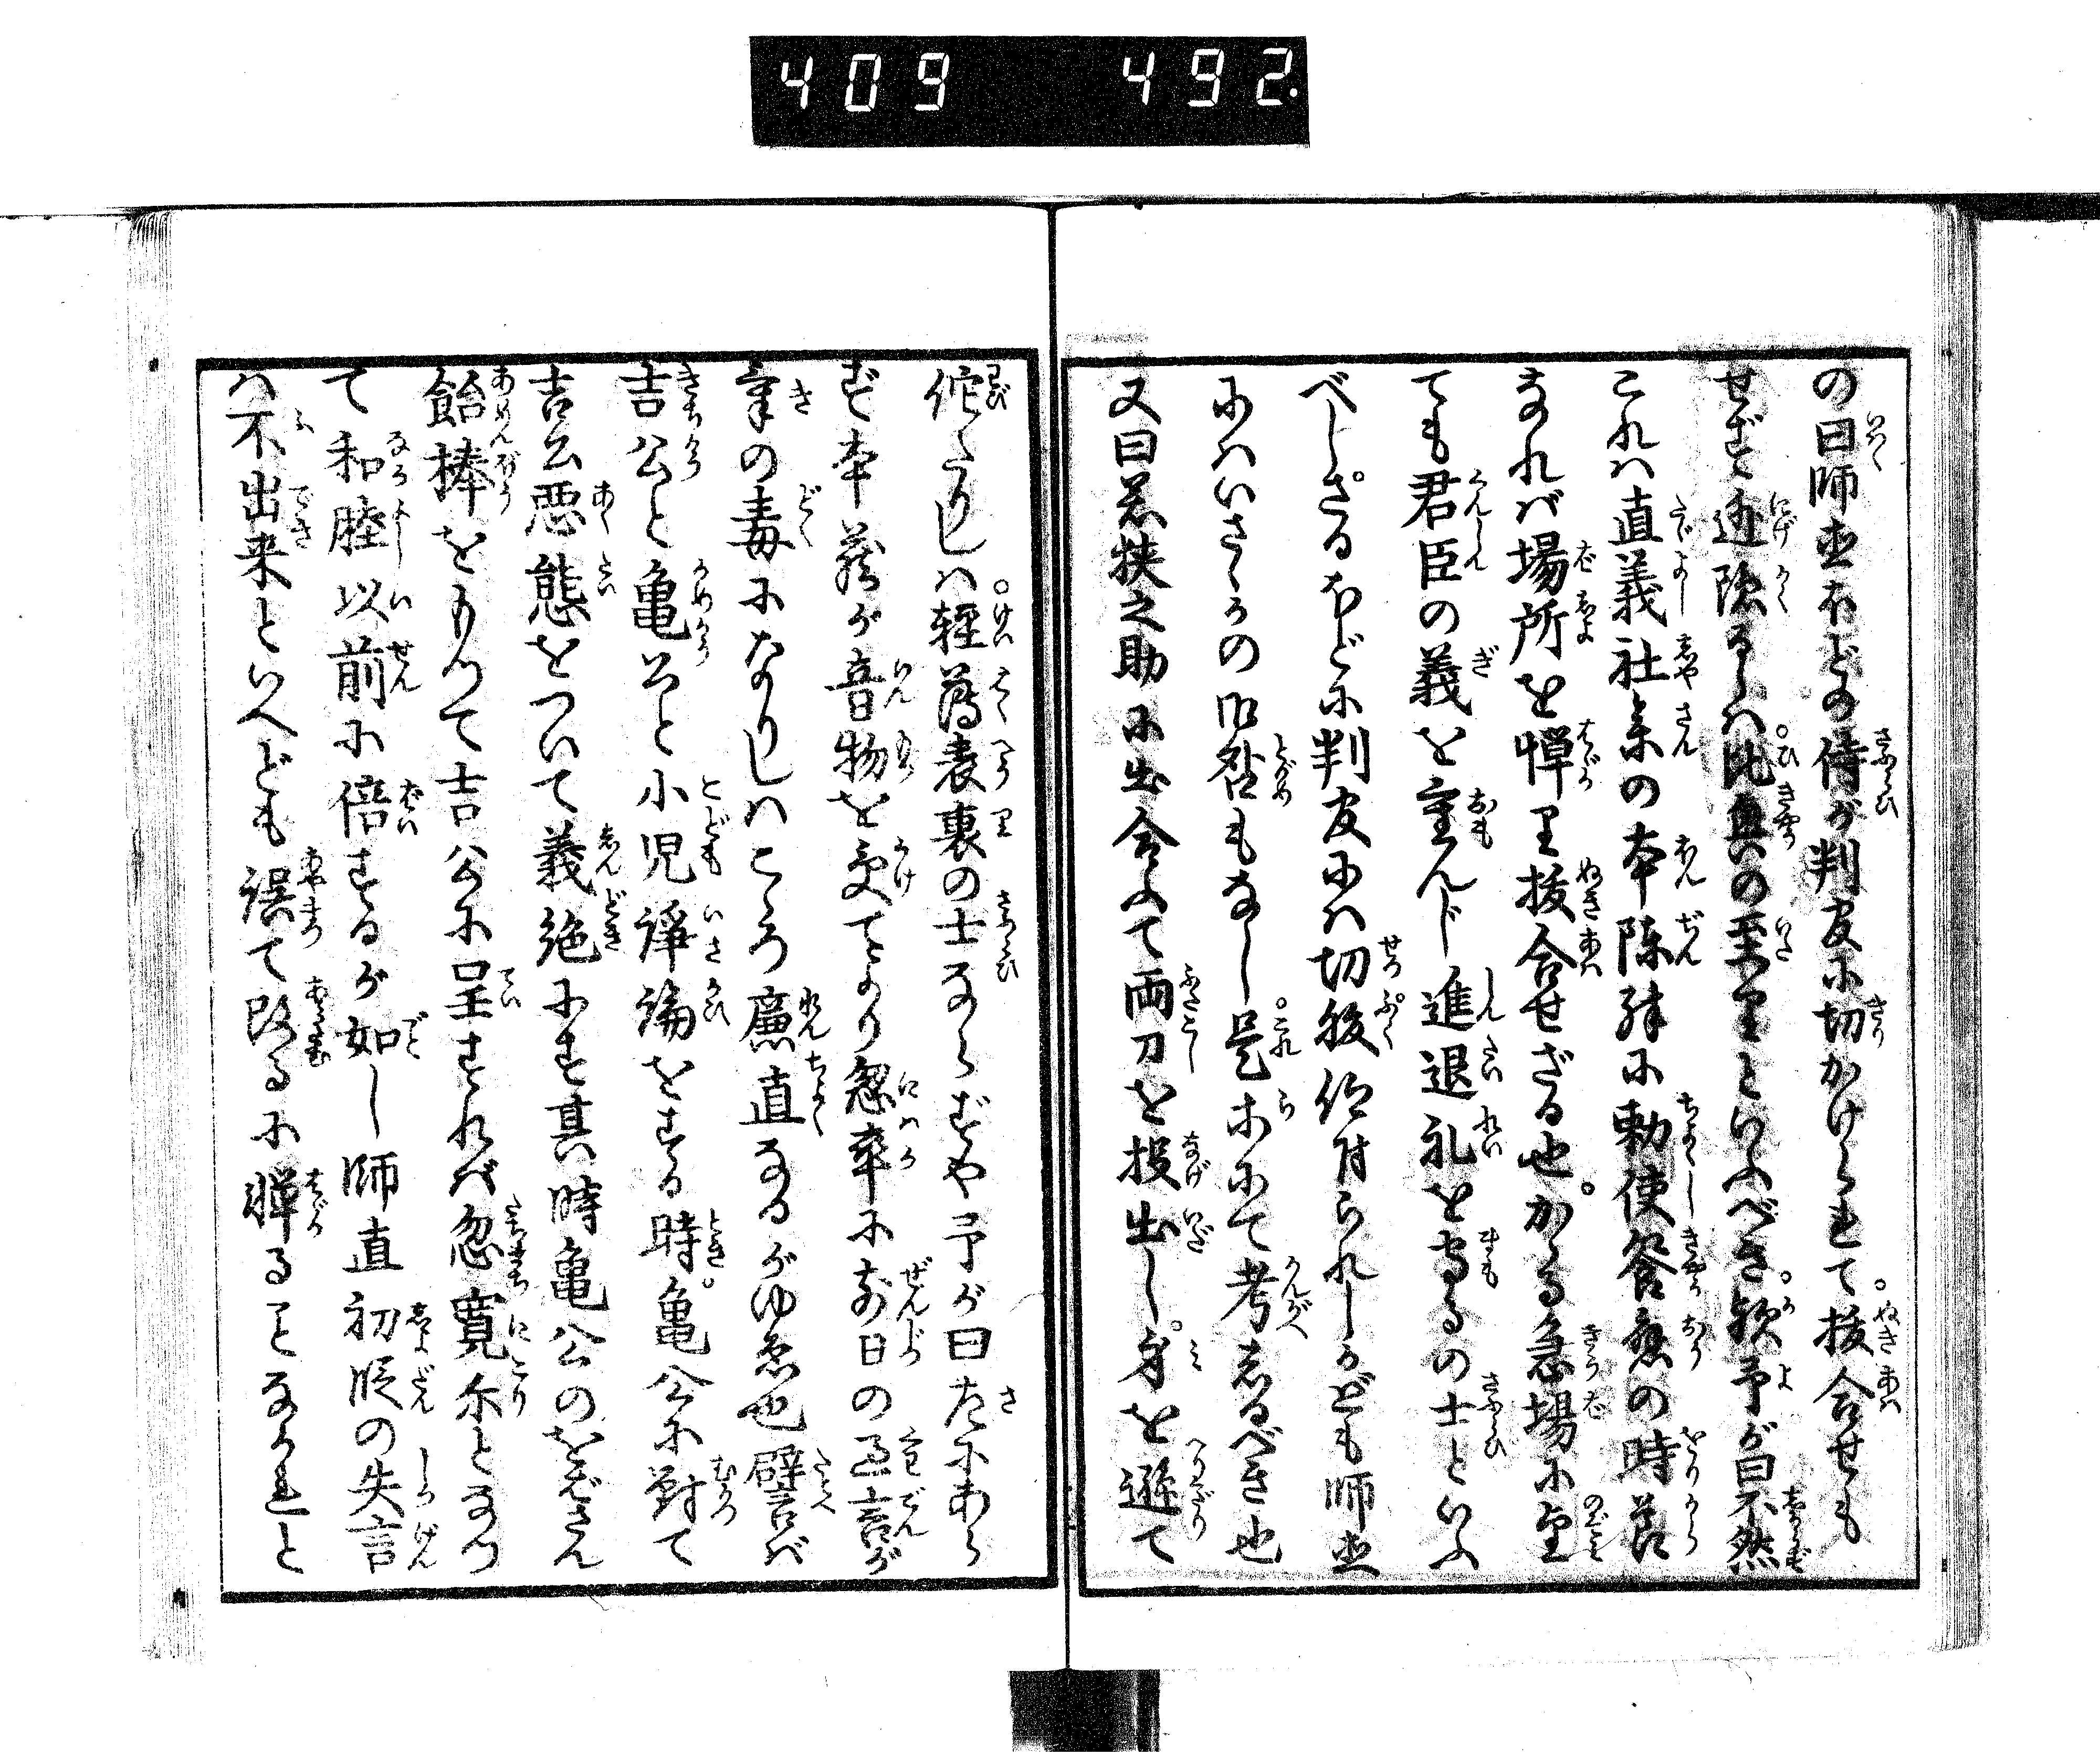 409 492.
の曰師直ほどの侍が判官に切かけられて。抜合せも
せず迯隠るゝハ。比興の至りといふべき。歟予が曰不然
これハ直義社参の本陣殊に勅使饗應の時節
なれバ場所を憚り抜合せざる也。かゝる急場に望
ても君臣の義を重んじ進退礼を守るの士といふ
べし。さるほどに判官にハ切腹仰付られしかども師直
にハいさゝかの御咎もなし。是等にて考しるべき也
又曰若狭之助に出会ふて両刀を投出し。身を遜て
佗たりしハ。軽薄表裏の士ならずや予が曰左にあら
ず本蔵が音物を受てより忽卒に前日の過言が
氣の毒になりしハこゝろ廉直なるがゆゑ也譬言バ
吉公と亀公と小児諍論をする時。亀公に対て
吉公悪態をついて義絶にす其時亀公のをばさん
飴棒をもつて吉公に呈すれバ忽寛尓となつ
て和睦以前に倍するが如し師直初段の失言
ハ不出来といへども誤て改るに憚ることなかれと